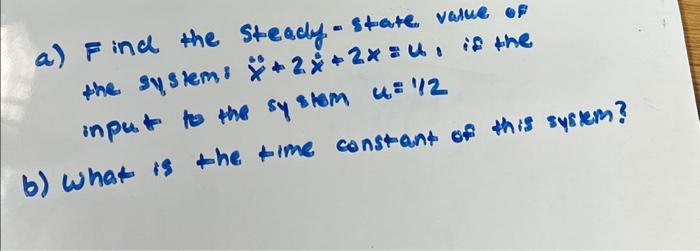 a) Find the steady-state value of
the system: ẍ + 2ẋ + 2x = u, if the
input to the system u = 1/2
b) What is the time constant of this system?